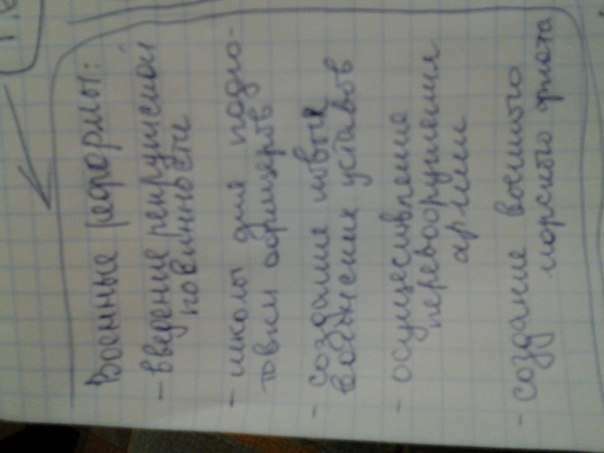 Военные реформы:
- введение рекрутской
повинности
- школы для подго-
товки офицеров
- создание новых
военных уставов
- осуществление
перевооружения
армии
- создание военного
морского флота